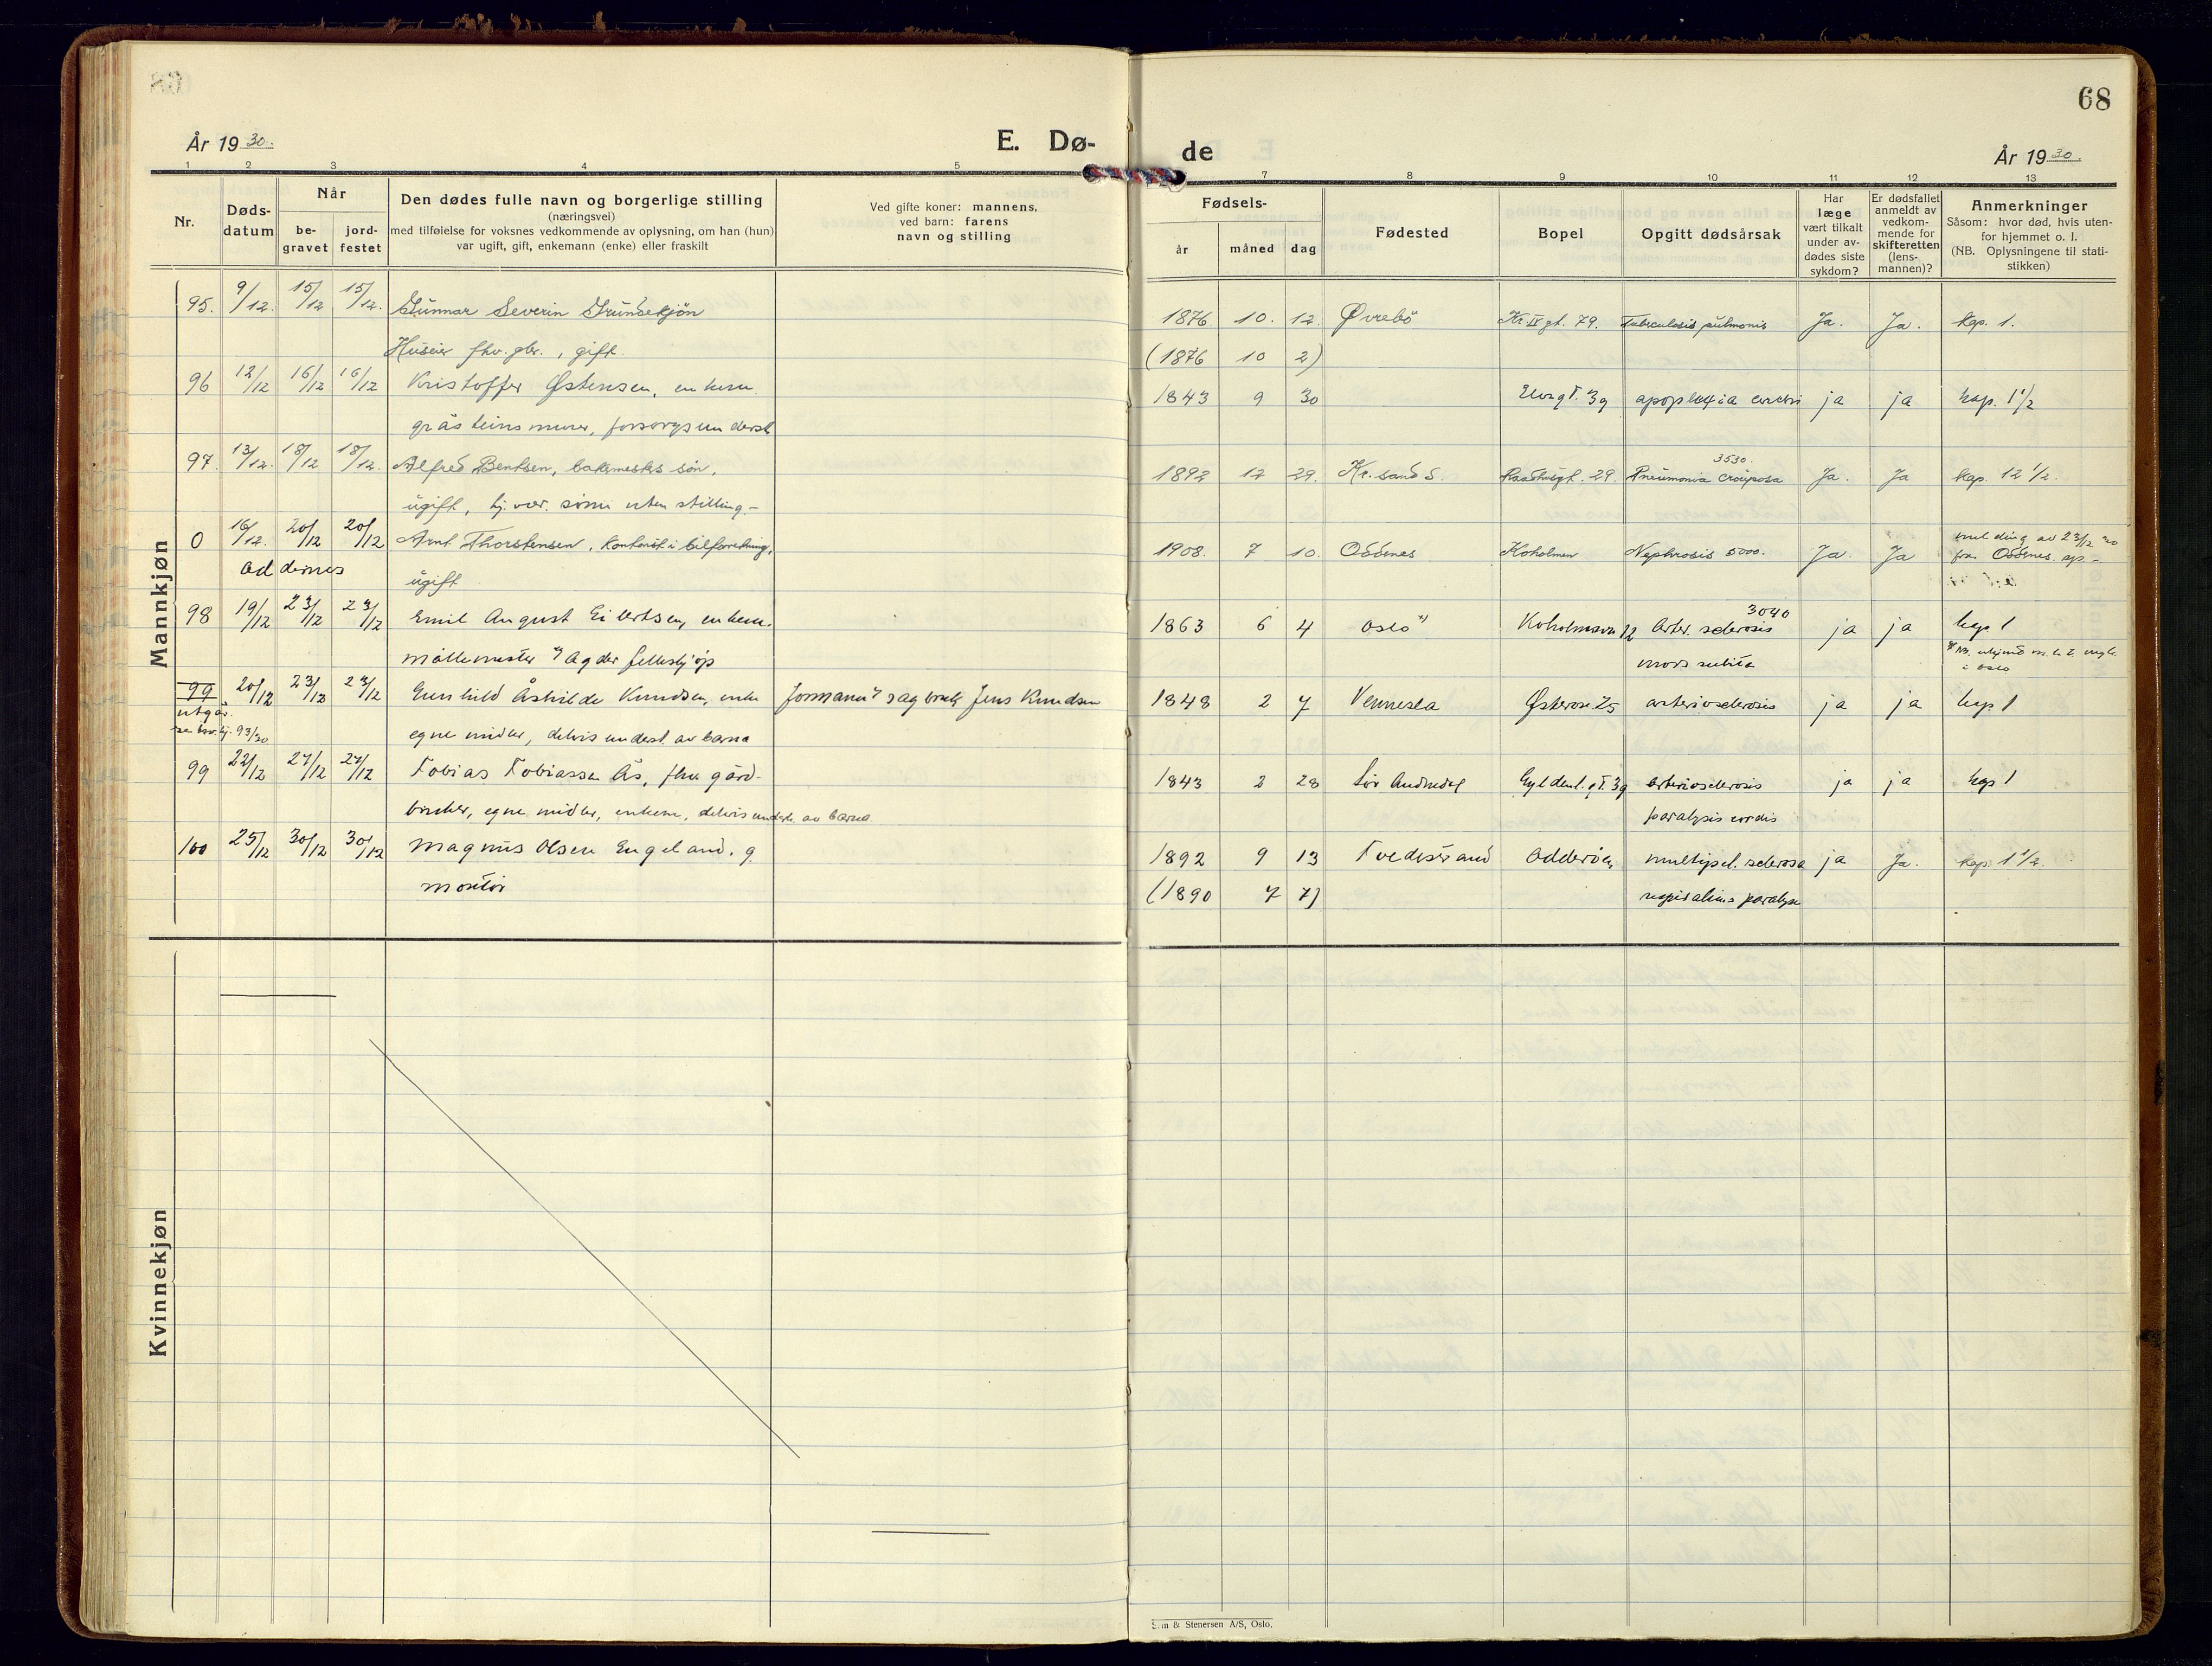 68
År 1930.
E. Dø-
de
År 1930.
1 2 3 4 5 7 8 9 10 11 12 13
Nr.
Døds-
datum
Når
be-
gravet
jord-
festet
Den dødes fulle navn og borgerlige stilling
(næringsvei)
med tilføielse for voksnes vedkommende av oplysning, om han (hun)
var ugift, gift, enkemann (enke) eller fraskilt
Ved gifte koner: mannens,
ved barn: farens
navn og stilling
Fødsels-
år måned dag
Fødested
Bopel
Opgitt dødsårsak
Har
læge
vært tilkalt
under av-
dødes siste
sykdom?
Er dødsfallet
anmeldt av
vedkom-
mende for
skifteretten
(lens-
mannen)?
Anmerkninger
Såsom: hvor død, hvis uten-
for hjemmet o. l.
(NB. Oplysningene til stati-
stikken)
Mannkjøn
95. 9/12. 15/12 15/12. Gunnar Severin Grundekjön 1876 10. 12. Øvrebö Kr. IV gt. 79. Tuberculosis pulmonis Ja. Ja. Kap. 1.
Huseier fhv. gbr., gift. (1876 10 2)
96 12/12 16/12 16/12 Kristoffer Østensen, enkem. 1843 9 30 Elvegt. 39 apoplexia cerebri ja ja kap. 1 1/2
gråsteinsmurer, forsorgsunderst.
97. 13/12. 18/12 18/12. Alfred Bentsen, bakermesters sön, 1892 12 29. Kr.sand S. Raadhusgt. 29. Pneumonia crouposa 3530. Ja. Ja Kap. 12 1/2.
ugift, hj.vær. sönn uten stilling.-
0 16/12. 20/12 20/12 Arnt Thorstensen, kontorist i bilforretning, 1908. 7 10. Oddernes Koholmen Nephrosis 5000. Ja. Ja melding av 23/12 30
Oddernes ugift fra Oddernes. sp.-
98 19/12 23/12 23/12 Emil August Eilertsen, enkem. 1863 6 4 Oslo *) Koholmsvn 12 Arter. sclerosis 3040 ja ja kap 1
möllemester v/ Agder felleskjöp mors subita
i Oslo
99 20/12 23/12 23/12 Gunhild Åshilde Knudsen, enke formann v/ sagbruk Jens Knudsen 1848 2 7 Vennesla Østerve. 25 arteriosclerosis ja ja kap 1
utgår.
93/30 egne midler, delvis underst. av barna
99 22/12 27/12 27/12 Tobias Tobiassen Ås, fhv gård- 1843 2 28 Sör Audnedal Gyldenl. gt. 39 arteriosclerosis ja ja kap 1
bruker, egne midler, enkem, delvis underst. av barna paralysis cordis
100 25/12 30/12 30/12 Magnus Olsen Engeland. g 1892 9 13 Tvedestrand Odderöen multipel. sclerosa ja Ja. Kap. 1 1/2.
montör (1890 7 7) respirations paralyse
Kvinnekjøn
& Stenersen A/S, Oslo.